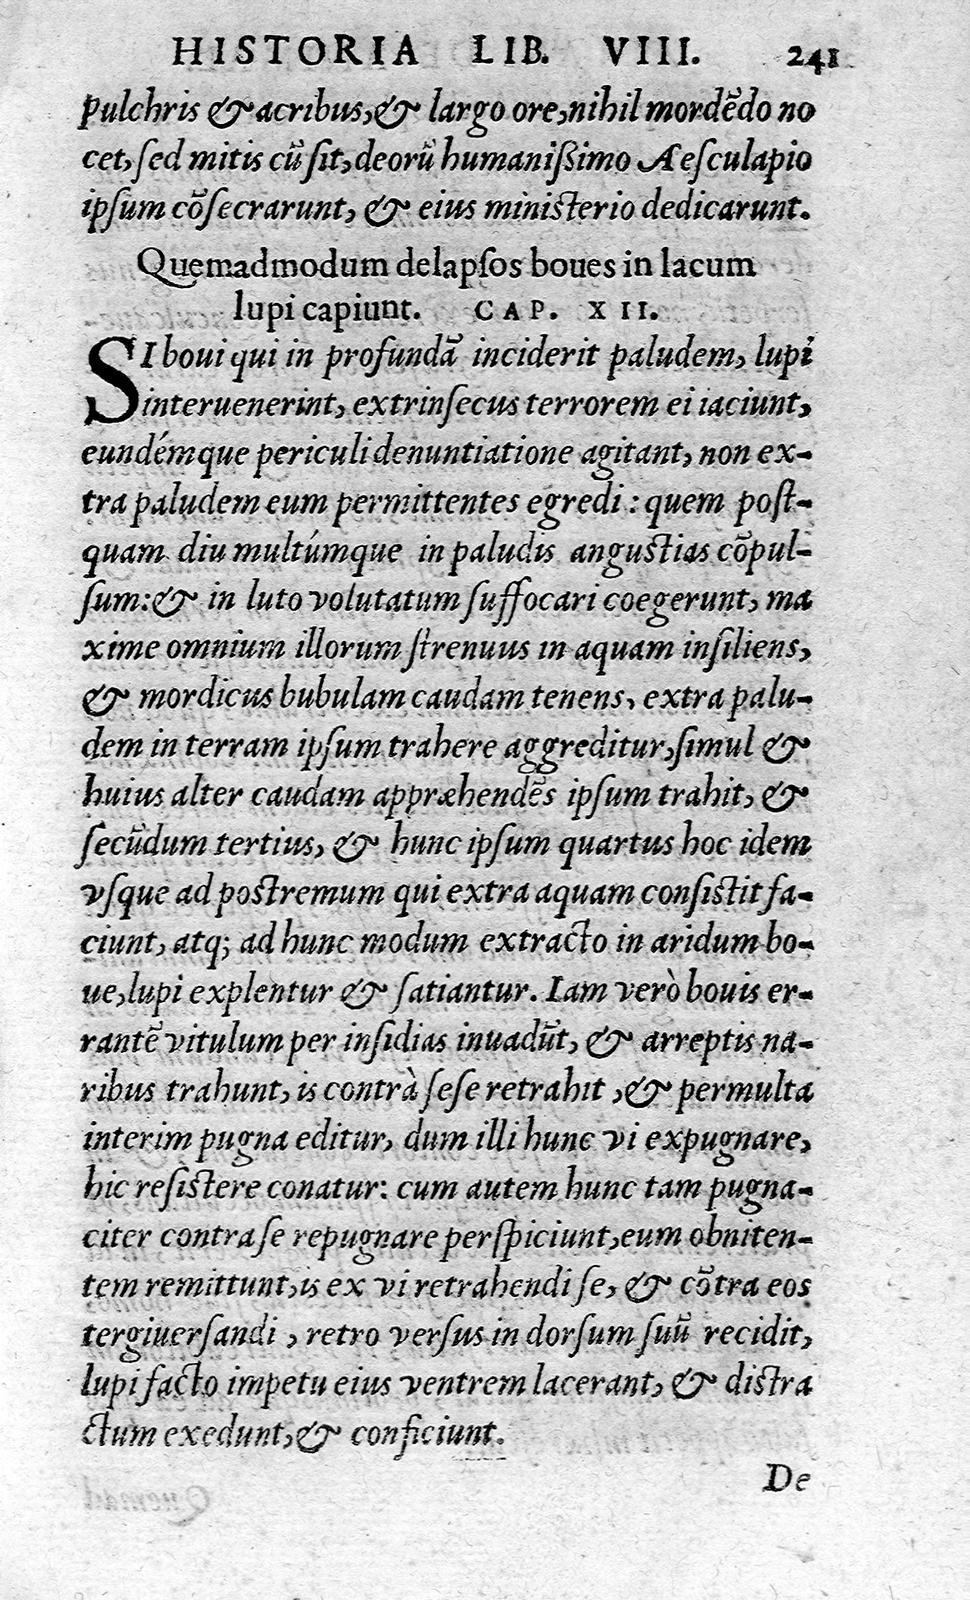 HISTORIA LIB. VIII. 241
pulchris & acribus, & largo ore, nihil mordẽdo no
cet, ſed mitis cũ ſit, deorũ humaniſsimo Aeſculapio
ipſum cõſecrarunt, & eius miniſterio dedicarunt.
Quemadmodum delapſos boues in lacum
lupi capiunt. CAP. XII.
SI boui qui in profundã inciderit paludem, lupi
interuenerint, extrinſecus terrorem ei iaciunt,
eundémque periculi denuntiatione agitant, non ex-
tra paludem eum permittentes egredi : quem poſt-
quam diu multúmque in paludis anguſtias cõpul-
ſum: & in luto volutatum ſuffocari coegerunt, ma
xime omnium illorum ſtrenuus in aquam inſiliens,
& mordicus bubulam caudam tenens, extra palu-
dem in terram ipſum trahere aggreditur, ſimul &
huius alter caudam appræhendẽs ipſum trahit, &
ſecũdum tertius, & hunc ipſum quartus hoc idem
vſque ad poſtremum qui extra aquam conſiſtit fa-
ciunt, atq; ad hunc modum extracto in aridum bo-
ue, lupi explentur & ſatiantur. Iam verò bouis er-
rantẽ vitulum per inſidias inuadũt, & arreptis na-
ribus trahunt, is contrà ſeſe retrahit , & permulta
interim pugna editur, dum illi hunc vi expugnare,
hic reſiſtere conatur: cum autem hunc tam pugna-
citer contra ſe repugnare perſpiciunt, eum obniten-
tem remittunt, is ex vi retrahendi ſe, & cõtra eos
tergiuerſandi , retro verſus in dorſum ſuũ recidit,
lupi facto impetu eius ventrem lacerant, & diſtra
ctum exedunt, & conficiunt.
De